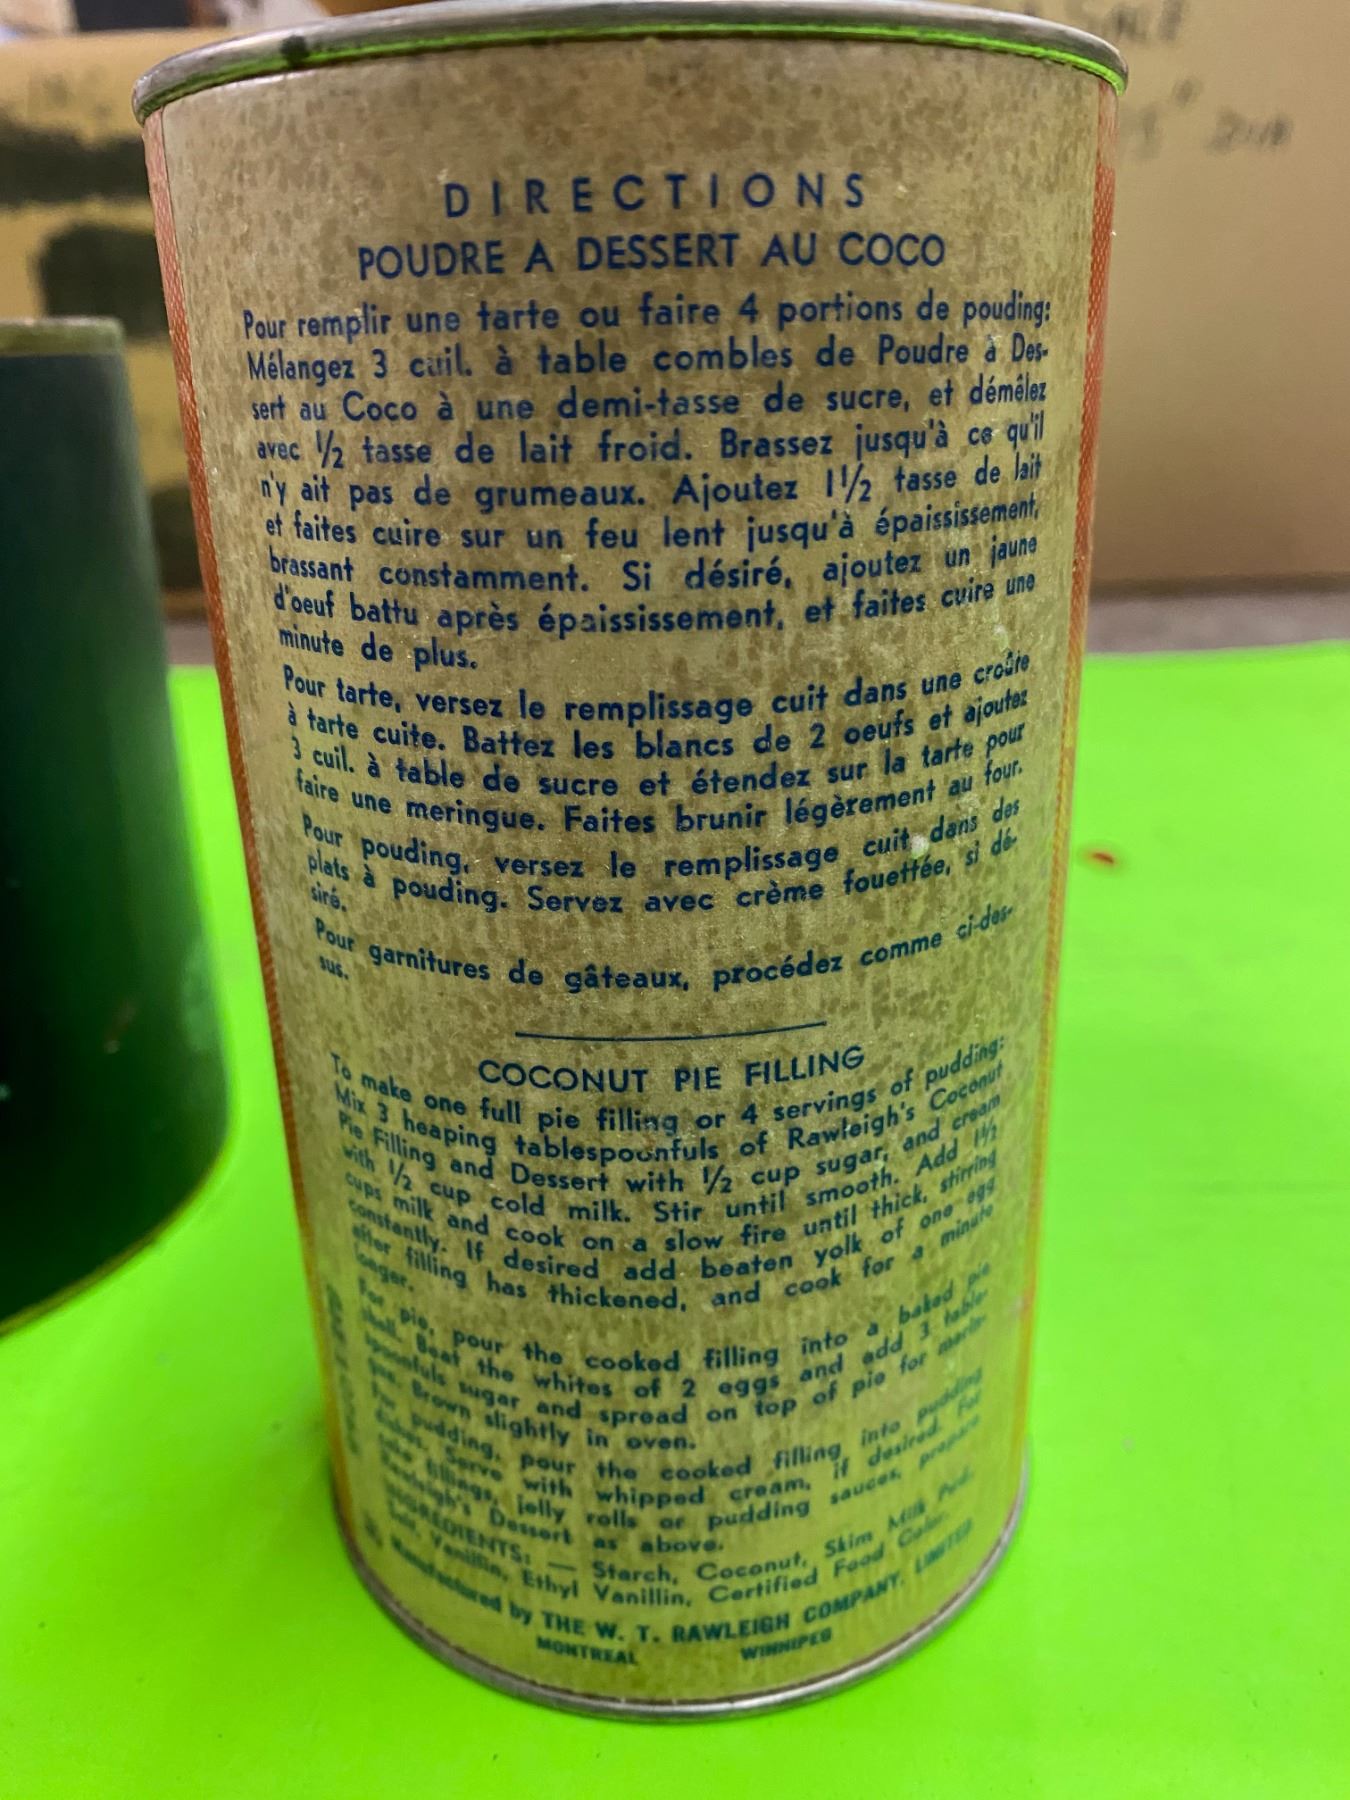 DIRECTIONS
POUDRE A DESSERT AU COCO
Pour remplir une tarte ou faire 4 portions de pouding:
Mélangez 3 cuil. à table combles de Poudre à Des-
sert au Coco à une demi-tasse de sucre, et démêlez
avec 1/2 tasse de lait froid. Brassez jusqu'à ce qu'il
n'y ait pas de grumeaux. Ajoutez 1 1/2 tasse de lait
et faites cuire sur un feu lent jusqu'à épaississement,
brassant constamment. Si désiré, ajoutez un jaune
d'oeuf battu après épaississement, et faites cuire une
minute de plus.
Pour tarte, versez le remplissage cuit dans une croûte
à tarte cuite. Battez les blancs de 2 oeufs et ajoutez
3 cuil. à table de sucre et étendez sur la tarte pour
faire une meringue. Faites brunir légèrement au four.
Pour pouding, versez le remplissage cuit dans des
plats à pouding. Servez avec crème fouettée, si dé-
siré.
Pour garnitures de gâteaux, procédez comme ci-des-
sus.
COCONUT PIE FILLING
To make one full pie filling or 4 servings of pudding:
Mix 3 heaping tablespoonfuls of Rawleigh's Coconut
Pie Filling and Dessert with 1/2 cup sugar, and cream
with 1/2 cup cold milk. Stir until smooth. Add 1 1/2
cups milk and cook on a slow fire until thick, stirring
constantly. If desired add beaten yolk of one egg
after filling has thickened, and cook for a minute
longer.
For pie, pour the cooked filling into a baked pie
shell. Beat the whites of 2 eggs and add 3 table-
spoonfuls sugar and spread on top of pie for merin-
gue. Brown slightly in oven.
For pudding, pour the cooked filling into pudding
dishes. Serve with whipped cream, if desired. For
cake fillings, jelly rolls or pudding sauces, prepare
Rawleigh's Dessert as above.
INGREDIENTS: — Starch, Coconut, Skim Milk Pod.
Salt, Vanillin, Ethyl Vanillin, Certified Food Color.
Manufactured by THE W. T. RAWLEIGH COMPANY, LIMITED
MONTREAL WINNIPEG